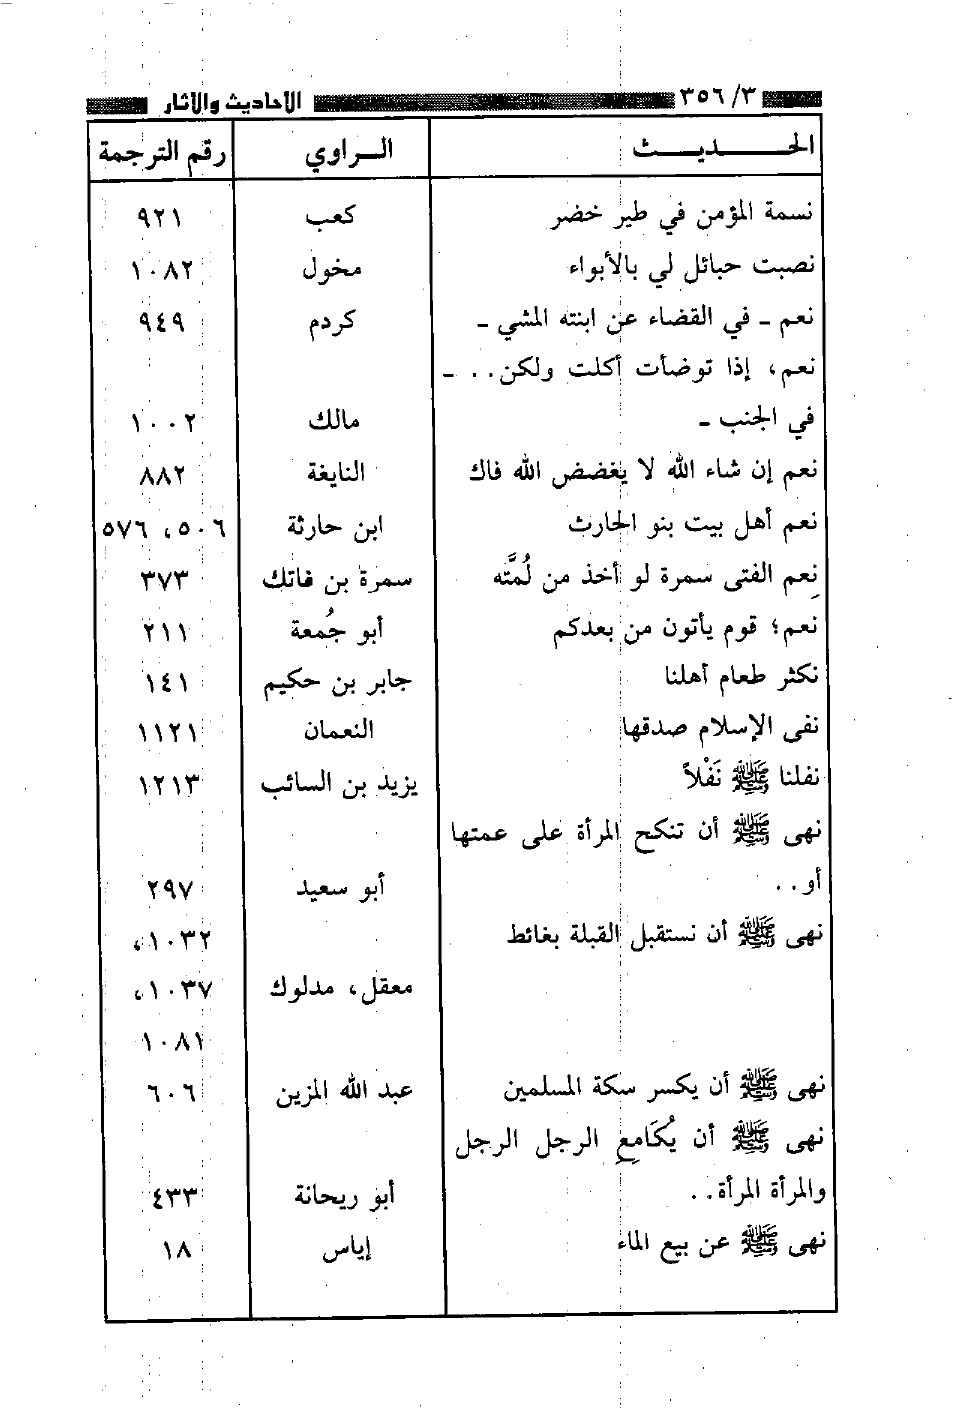 ٣/ ٣٥٦ الأحاديث والآثار
الحـــديـــث الــراوي رقم الترجمة
نسمة المؤمن في طير خضر كعب ٩٢١
نصبت حبائل لي بالأبواء مخول ١٠٨٢
نعم ـ في القضاء عن ابنته المشي ـ كردم ٩٤٩
نعم، إذا توضأت أكلت ولكن.. ـ
في الجنب ـ مالك ١٠٠٢
نعم إن شاء الله لا يغضض الله فاك النايغة ٨٨٢
نعم أهل بيت بنو الحارث ابن حارثة ٥٠٦، ٥٧٦
نِعم الفتى سمرة لو أخذ من لُمَّته سمرة بن فاتك ٣٧٣
نعم؛ قوم يأتون من بعدكم أبو جُمعة ٢١١
نكثر طعام أهلنا جابر بن حكيم ١٤١
نفى الإسلام صدقها النعمان ١١٢١
نفلنا ﷺ نَفْلاً يزيد بن السائب ١٢١٣
نهى ﷺ أن تنكح المرأة على عمتها
أو.. أبو سعيد ٢٩٧
نهى ﷺ أن نستقبل القبلة بغائط ١٠٣٢،
معقل، مدلوك ١٠٣٧،
١٠٨١
نهى ﷺ أن يكسر سكة المسلمين عبد الله المزين ٦٠٦
نهى ﷺ أن يُكَامِعِ الرجل الرجل
والمرأة المرأة.. أبو ريحانة ٤٣٣
نهى ﷺ عن بيع الماء إياس ١٨